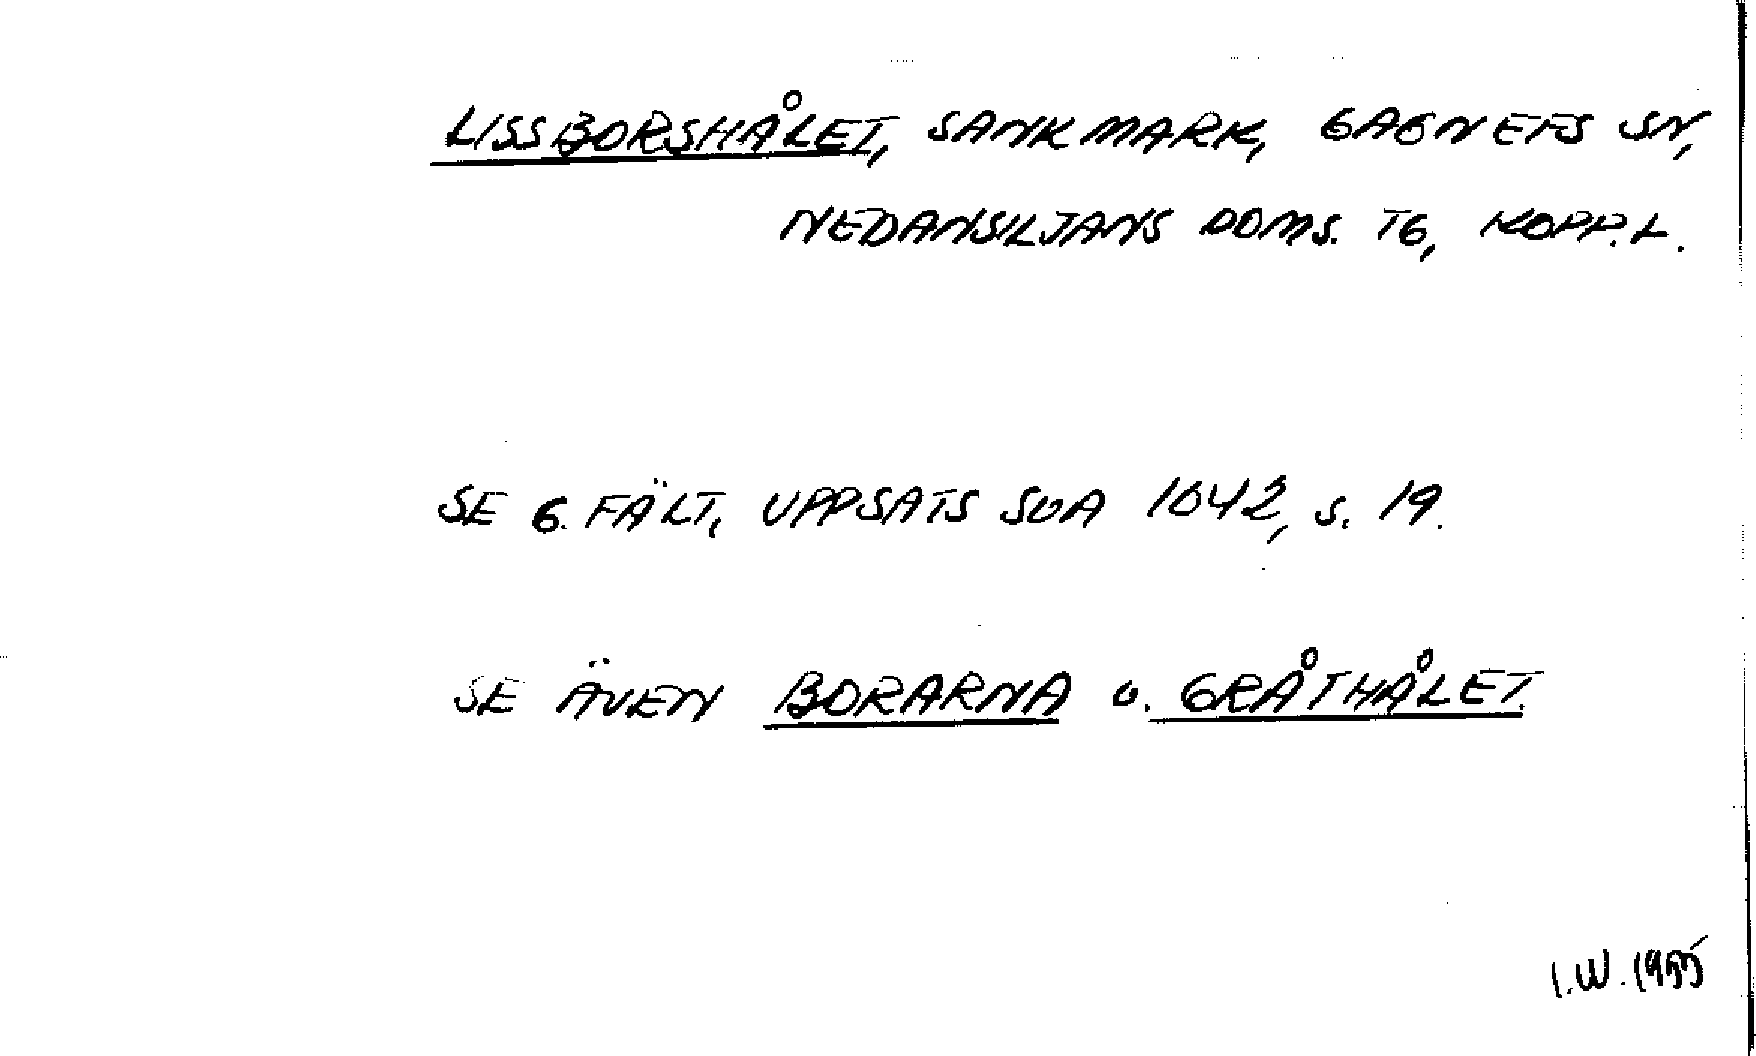 LISSBORSHÅLET, SANKMARK, GAGNEFS SN,
NEDANSILJANS DOMS. TG, KOPP. L.
SE G. FÄLT, UPPSATS SOA 1642, s. 19.
SE ÄVEN BORARNA o. GRÅTHÅLET.
I.W. 1955